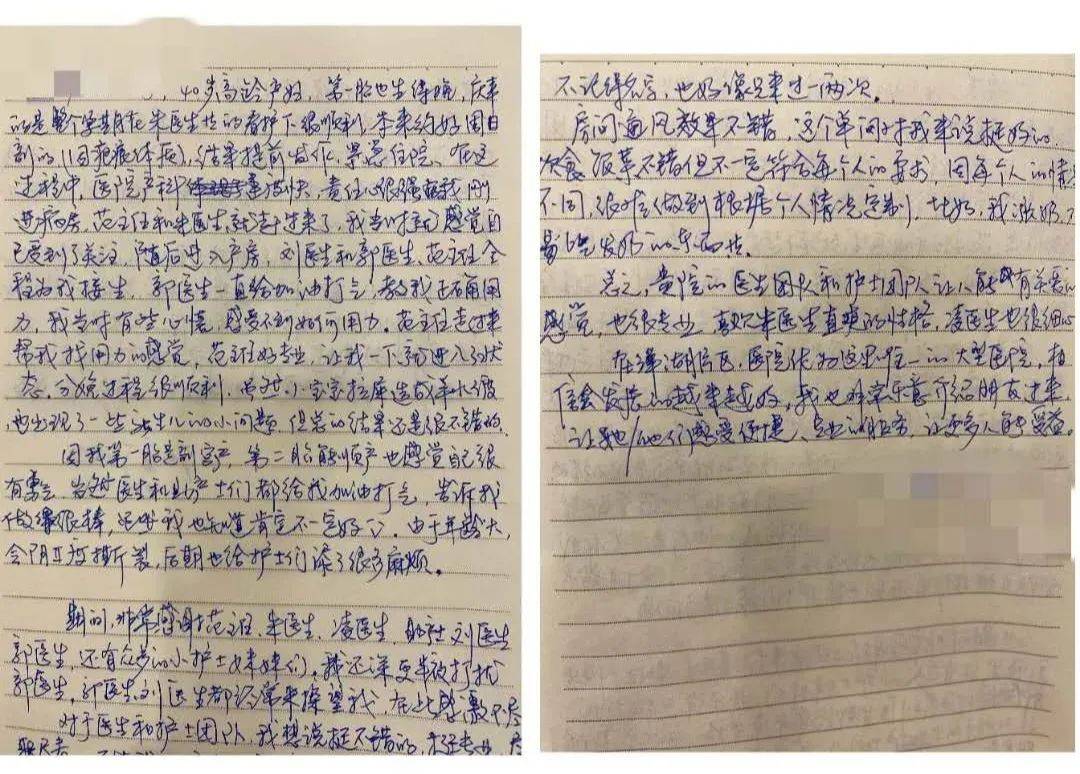 40岁高龄产妇，第一胎也生得晚，庆幸
的是整个孕期在朱医生的看护下很顺利，本来约好周日
剖的（因疤痕体质），结果提前发作，紧急住院。在这
过程中，医院产科速度快，责任心很强，我刚
进病房，范主任和朱医生就赶过来了，我当时就感觉自
己受到了关注，随后进入产房，刘医生和郭医生、范主任全
程为我接生，郭医生一直给加油打气，教我正确用
力，我当时有些心慌，感受不到如何用力。范主任走过来
帮我找用力的感觉，范主任好专业，让我一下就进入了状
态，分娩过程很顺利，当时小宝宝拉库造成羊水
也出现了一些小问题，但总的结果还是很不错的。
因我第一胎是剖宫产，第二胎能顺产也感觉自己很
有勇气，当时医生和护士们都给我加油打气，告诉我
做得很棒，我也知道肯定不一定好。由于年龄大，
会阴II度撕裂，后期也给护士们添了很多麻烦。
期间，非常感谢范主任、朱医生、凌医生、刘医生
郭医生，还有众多的小护士妹妹们，我还深更半夜打扰
郭医生，郭医生、刘医生都经常来探望我，在此感激不尽
对于医生和护士团队，我想说挺不错的，专业，
不记得名字，也好像只来过一两次。
房间通风效果不错，这个单间对我来说挺好的，
饮食饭菜不错但不一定符合每个人的要求，因每个人的情况
不同，很难做到根据个人情况定制，比如，我涨奶，不
易吃发奶的东西。
总之，贵院的医生团队和护士团队让人能有关爱的
感觉，也很专业，喜欢朱医生直爽的性格，凌医生也很细心
在湖片区，医院作为这里唯一的大型医院，相
信会发展的越来越好，我也非常乐意介绍朋友过来，
让她/他们感受便捷、专业的服务，让更多人能受益。